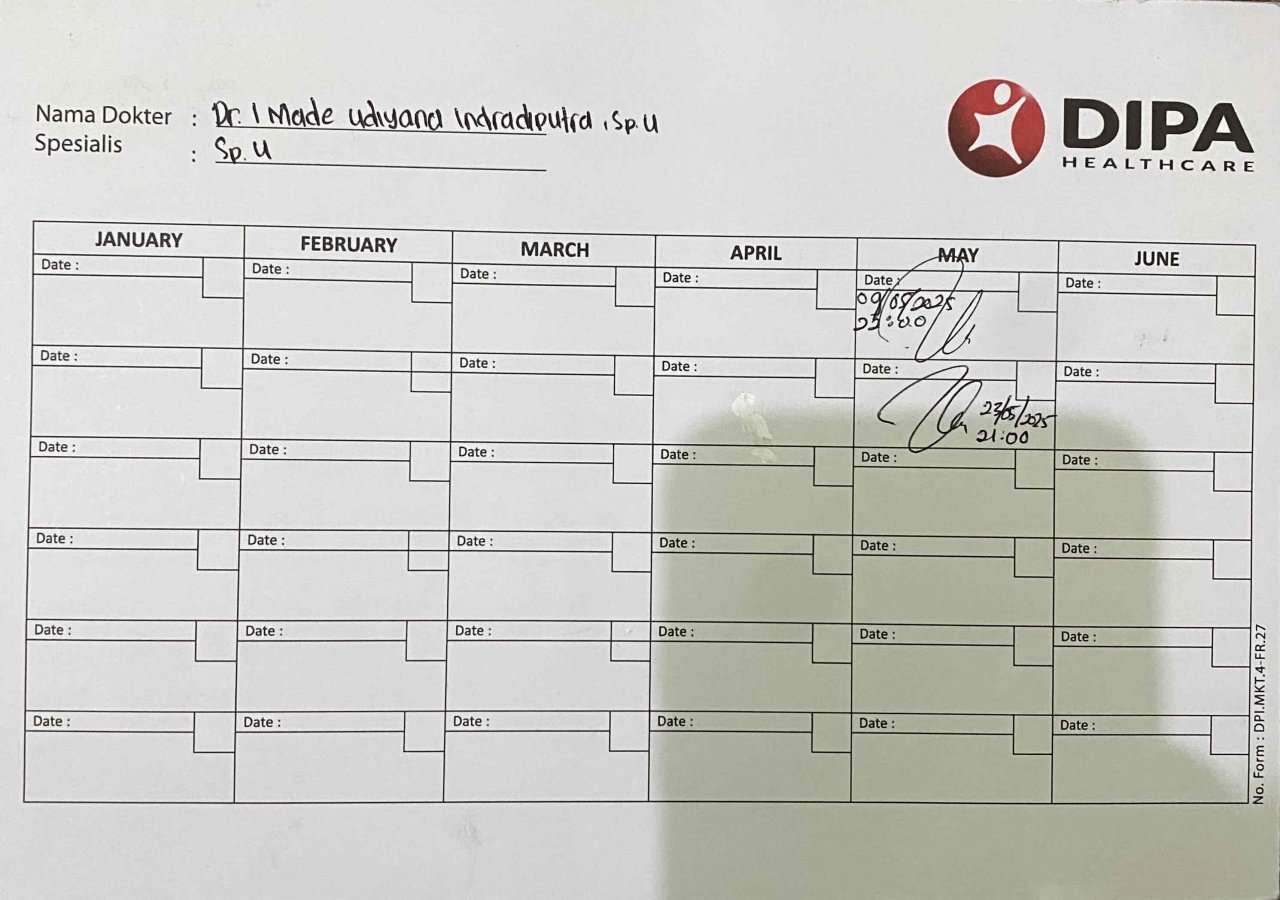 Nama Dokter : Dr. I Made Udiyana Indradiputra, Sp.U
Spesialis : Sp.U
DIPA
HEALTHCARE
JANUARY FEBRUARY MARCH APRIL MAY JUNE
Date : Date : Date : Date : Date : Date :
09/05/2025
Date : Date : Date : Date : Date : Date :
23/05/2025
21:00
Date : Date : Date : Date : Date : Date :
Date : Date : Date : Date : Date : Date :
Date : Date : Date : Date : Date : Date :
Date : Date : Date : Date : Date : Date :
No. Form : DPI.MKT.4-FR.27